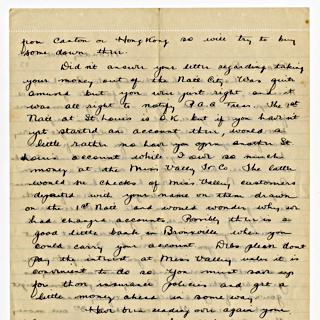 from Canton or Hong Kong so will try to buy
some down there.
Didn't answer your letter regarding taking
your money out of the Natl City. Was quite
amused but you were just right and it
was all right to notify P.A.A. Treas. The 1st
Natl at St Louis is O.K. but if you haven't
yet started an account there, would a
little rather not have you open another St
Louis account while I owe so much
money at the Miss Valley Tr Co. The latter
would see checks of Miss Valley customers
deposited with your name on them drawn
on the 1st Natl and would wonder why we
had changed accounts. Possibly there is a
good little bank in Bronxville where you
could carry your account. Debs please don't
pay the interest at Miss Valley unless it is
convenient to do so. You must save up
for those insurance policies and get a
little money ahead in some way.
Have been reading over again your